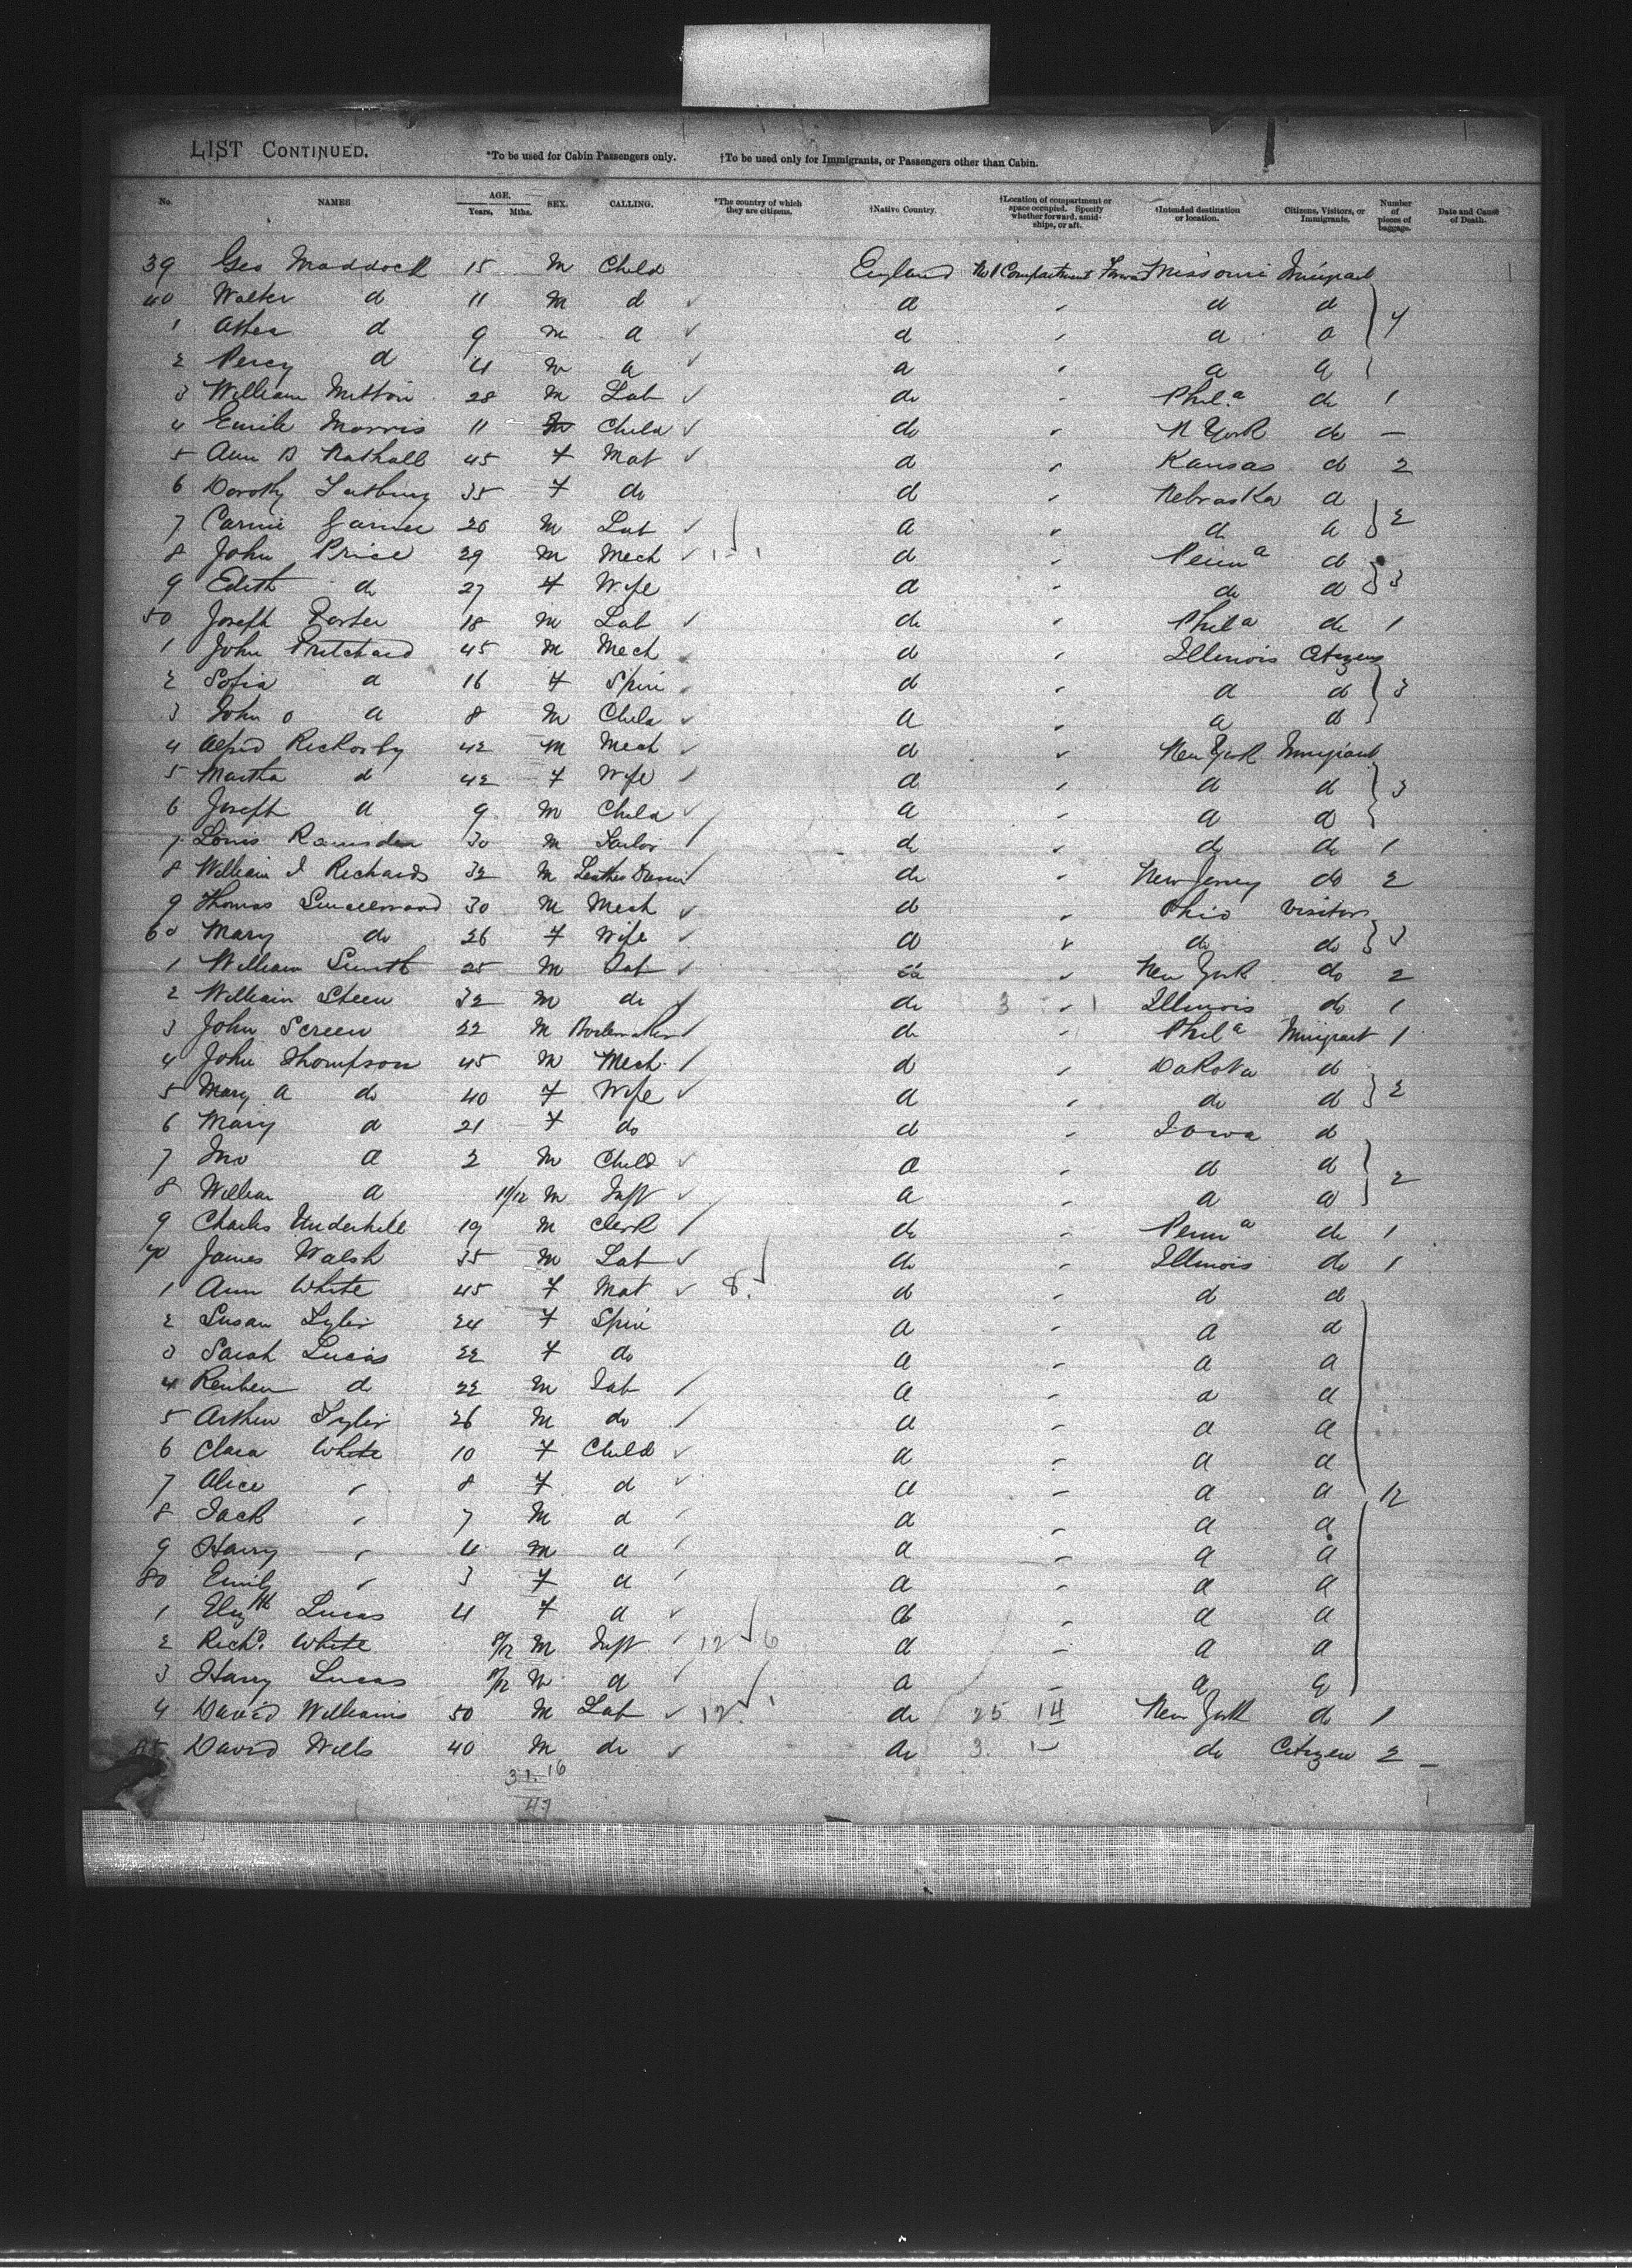 LIST CONTINUED. *To be used for Cabin Passengers only. †To be used only for Immigrants, or Passengers other than Cabin.
No. NAMES AGE. Years. Mths. SEX. CALLING. *The country of which they are citizens. †Native Country. †Location of compartment or space occupied. Specify whether forward, amidships, or aft. †Intended destination or location. Citizens, Visitors, or Immigrants. Number of pieces of baggage. Date and Cause of Death.
39 Geo Maddock 15 M Child England No 1 Compartment Missouri Immigrant
40 Walter d 11 M d d d d
1 d 9 M d d d d 4
2 Percy d 4 M d d d d
3 William 28 M Lab do Phila do 1
4 Morris 11 Child do N York do —
5 Ann 45 F Mat d Kansas d 2
6 Dorothy 35 F do d Nebraska d
7 26 M Lab d d d 2
8 John Price 29 M Mech d Penna d
9 Edith do 27 F Wife d do d 3
50 Joseph 18 M Lab do Phila do 1
1 John Pritchard 45 M Mech d Illinois Citizens
2 Sofia d 16 F Spin d d d 3
3 John d 8 M Child d d d
4 Alfrd 42 M Mech d New York Immigrant
5 Martha d 42 F Wife d d d 3
6 Joseph d 9 M Child d d d
7 Louis Ramsden 30 M Tailor do do do 1
8 William J Richards 32 M do New Jersey do 2
9 Thomas 30 M Mech d Ohio Visitors
60 Mary do 26 F Wife d do do 3
1 William Smith 25 M Lab do New York do 2
2 William 32 M do do 3 1 Illinois do 1
3 John Screen 22 M Boilermaker do Phila Immigrant 1
4 John Thompson 45 M Mech d Dakota d
5 Mary A do 40 F Wife d do d 2
6 Mary d 21 F do d Iowa d
7 Jno d 2 M Child d d d
8 William d 11/12 M Inft d d d 2
9 Charles Underhill 19 M Clerk do Penna do 1
70 James Walsh 35 M Lab do Illinois do 1
1 Ann White 45 F Mat 8 d d d
2 Susan Tyler 24 F Spin d d d
3 Sarah Lucas 22 F do d d d
4 Reuben do 22 M Lab d d d
5 Arthur Tyler 26 M do d d d
6 Clara White 10 F Child d d d
7 Alice " 8 F d d d d 12
8 Jack " 7 M d d d d
9 Harry " 4 M d d d d
80 Emily " 3 F d d d d
1 Elizth Lucas 4 F d d d d
2 Richd. White M Inft 12 6 d d d
3 Harry Lucas M d d d d
4 David Williams 50 M Lab 12 1 do 25 14 New York do 1
85 David Wells 40 M do do 3 1 do Citizen 2 —
31 16
47